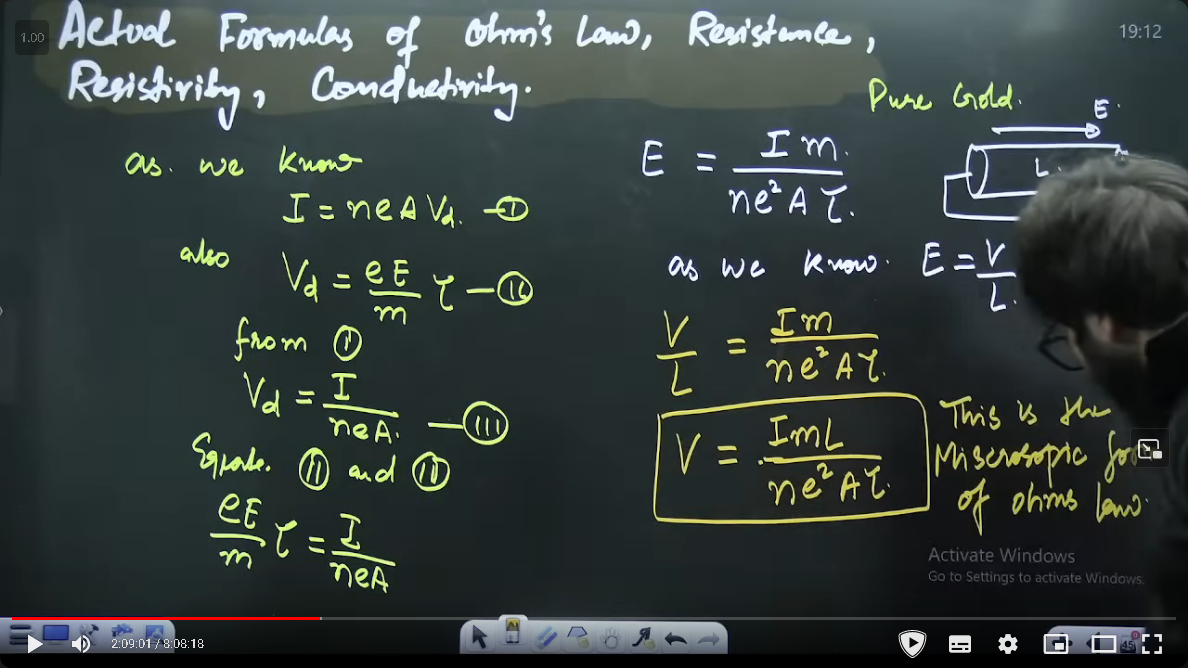 1.00
19:12
Actual Formulas of Ohm's Law, Resistance,
Resistivity, Conductivity.
as we know
I = neAVd. - I
also
Vd = eE/m τ - II
from I
Vd = I/neA. - III
Equate. II and III
eE/m τ = I/neA
Pure Gold.
E
L
E = Im/ne²Aτ.
as we know. E = V/L.
V/L = Im/ne²Aτ.
V = ImL/ne²Aτ.
This is the
Miscrosopic
of ohms law.
Activate Windows
Go to Settings to activate Windows.
2:09:01 / 8:08:18
45